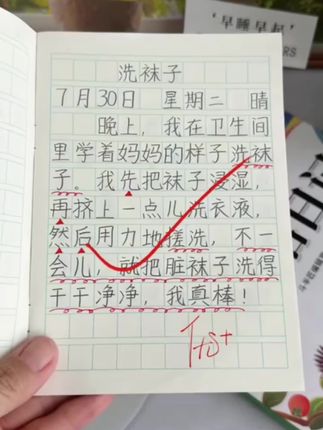 '早睡早起'
RS
洗袜子
7月30日 星期二 晴
晚上，我在卫生间
里学着妈妈的样子洗袜
子。我先把袜子浸湿，
再挤上一点儿洗衣液，
然后用力地搓洗，不一
会儿，就把脏袜子洗得
干干净净，我真棒！